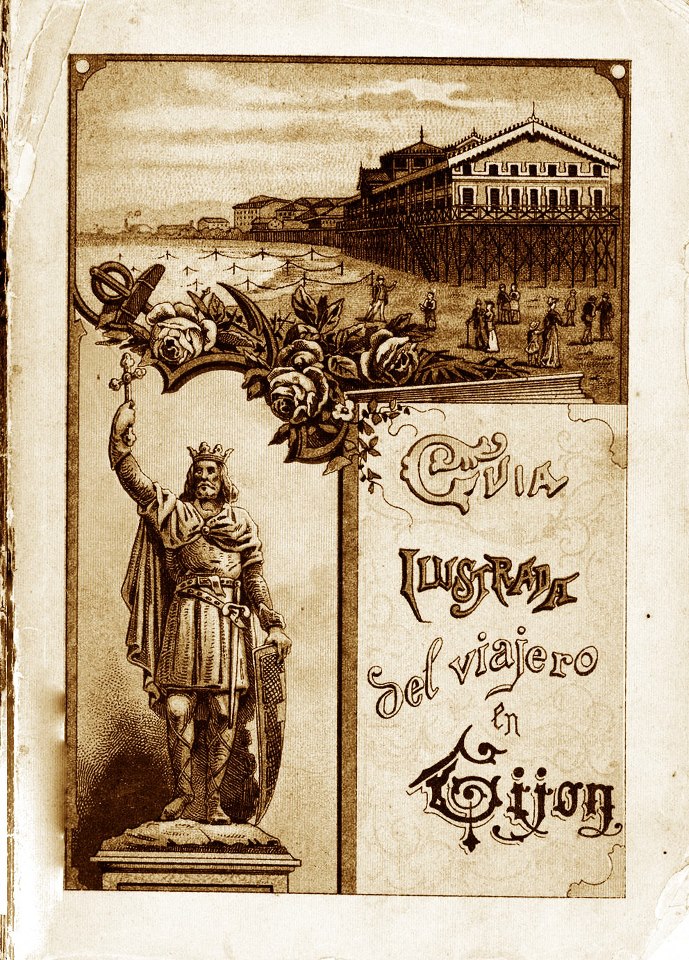 GUIA
ILUSTRADA
del viajero
en
Gijon